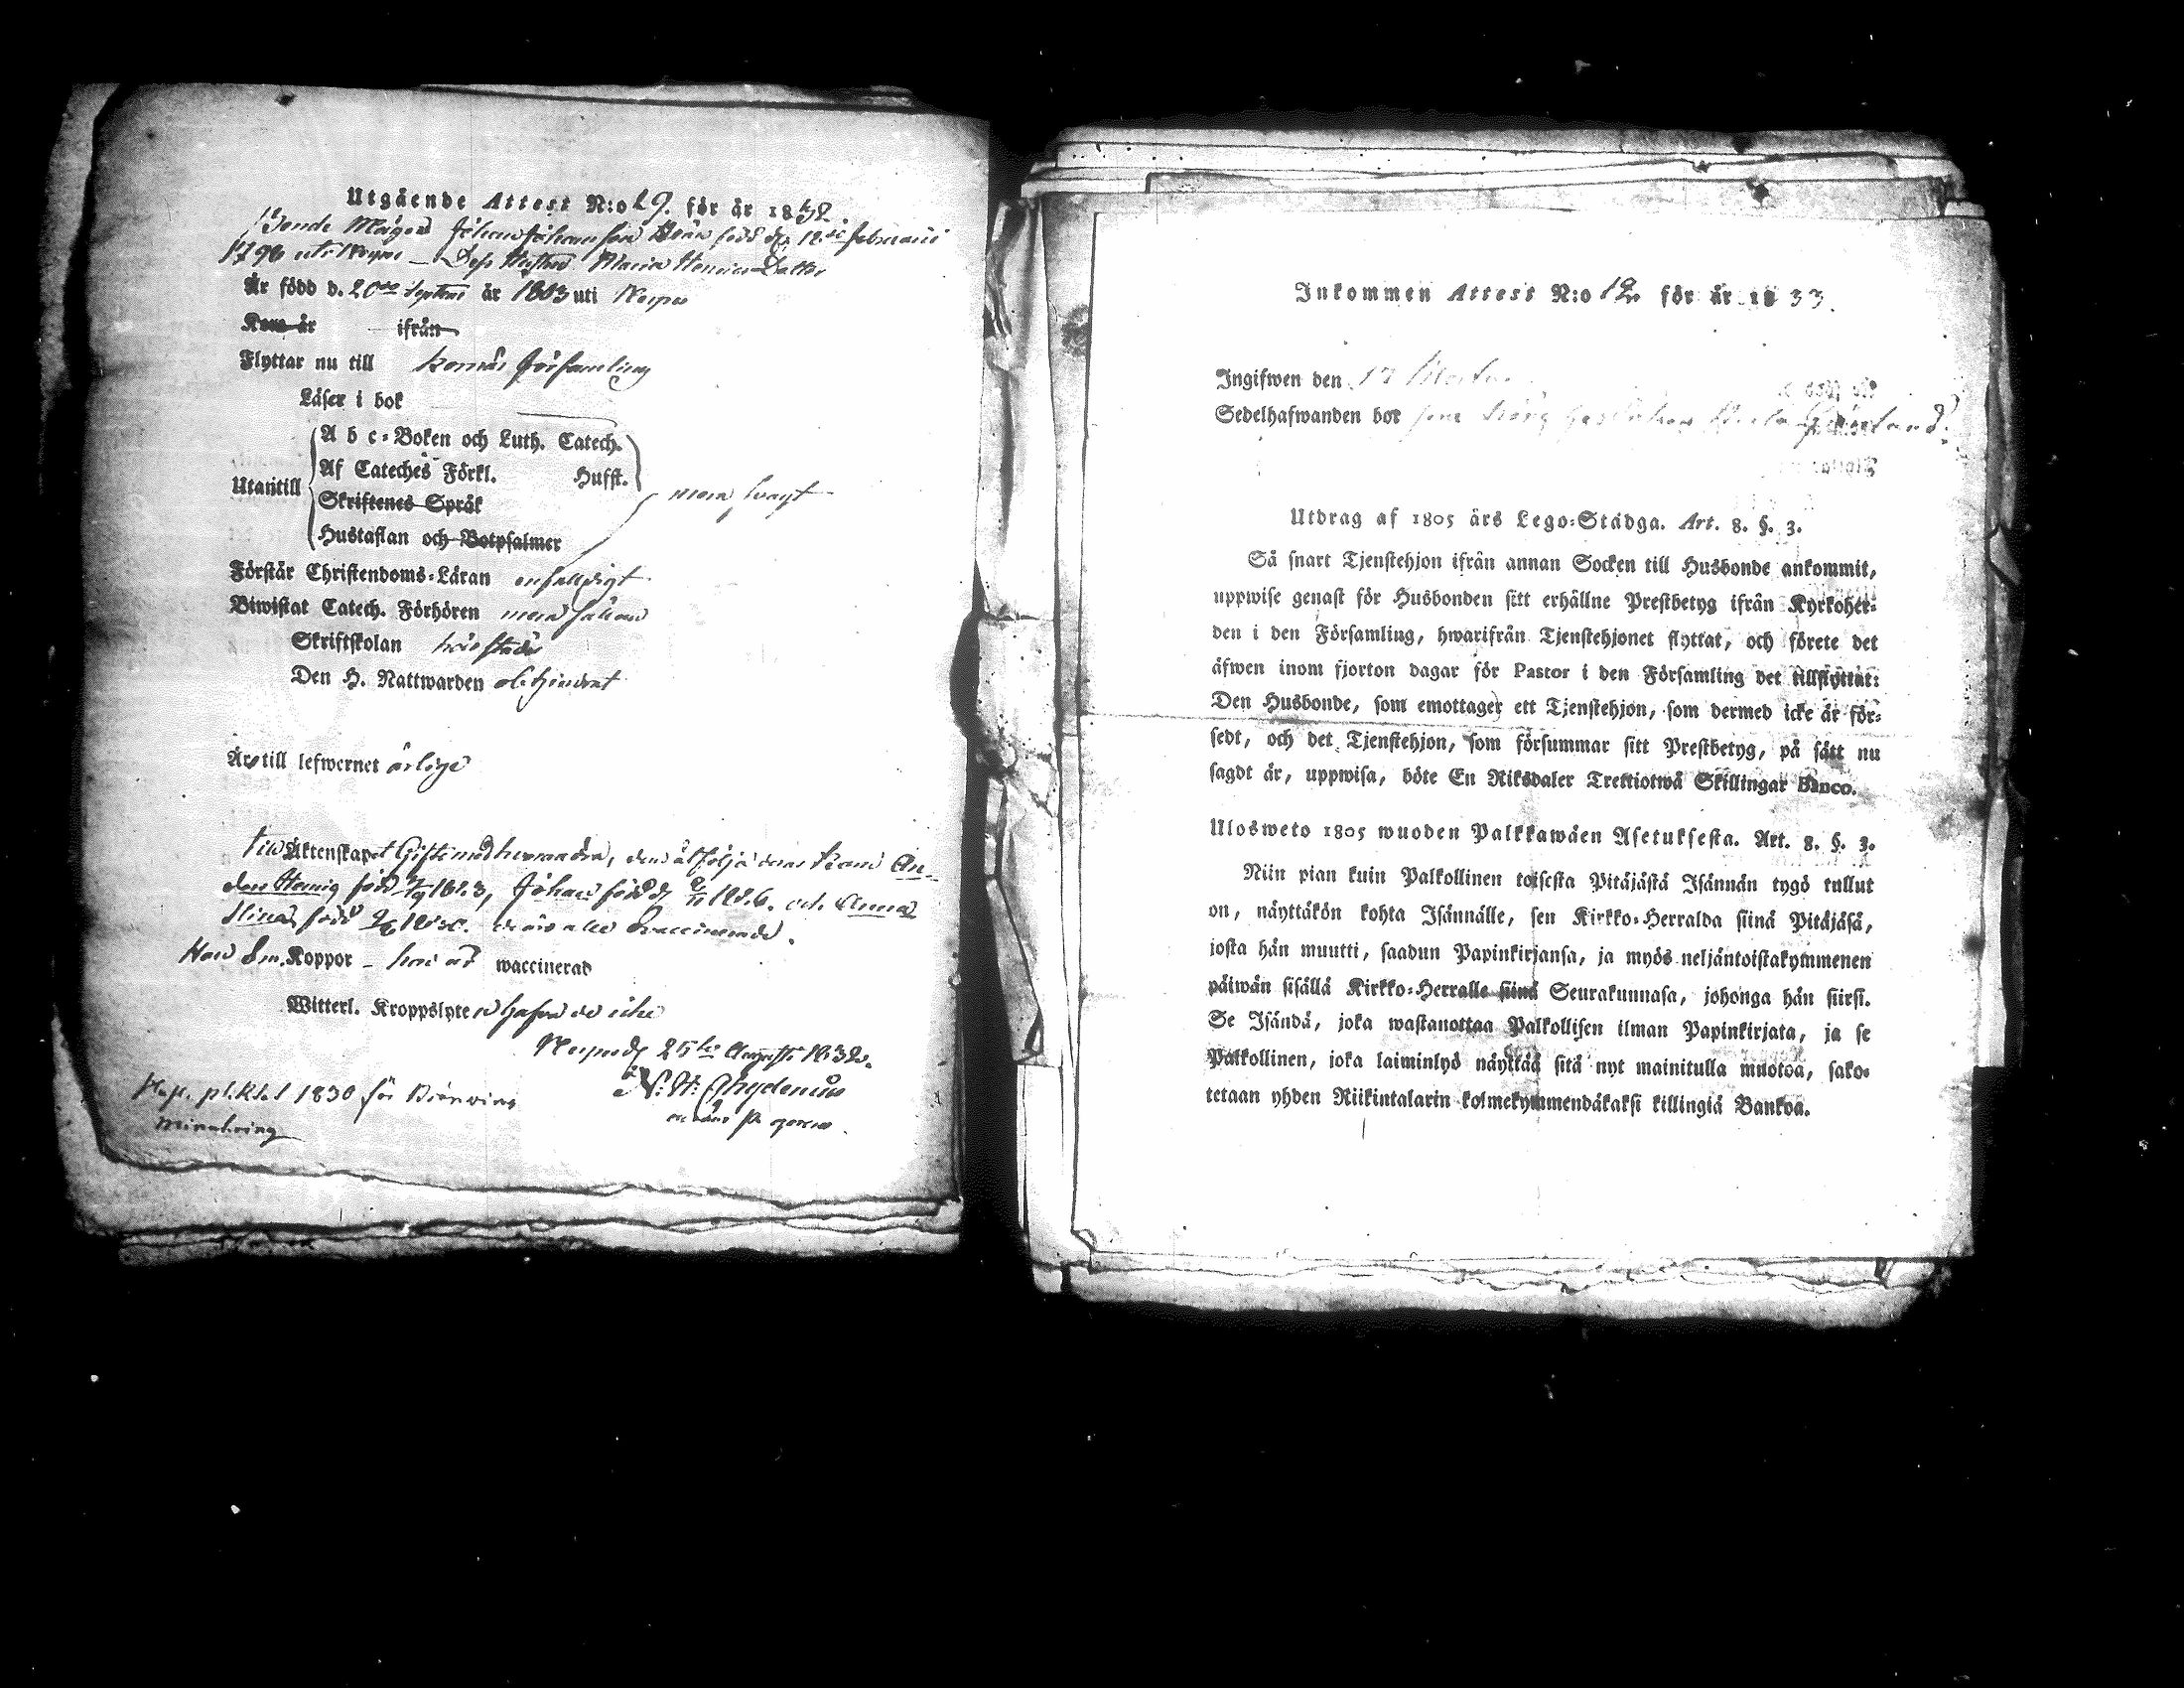 Utgående Attest N:o 29. för år 1832.
Bonde Mågen Johan Johansson född d. 12 februarii
1796 uti Nerpes — Dess Hustru Maria Henrics Dotter
Är född d. 20de Septem år 1803 uti Nerpes
Kom år ifrån
Flyttar nu till församling
Läser i bok
A b c-Boken och Luth. Catech.
Af Cateches Förkl. Hufst.
Utantill
Skriftenes Språk
Hustaflan och Botpsalmer
mera svagt
Förstår Christendoms-Läran enfalldigt
Biwistat Catech. Förhören mera sällan
Skriftskolan
Den H. Nattwarden obehindrat
Är till lefwernet ärlige
Äktenskapet Gifte med hvarandra, den åtfölja deras barn An-
ders Henrig född 1823, Johan född 1826. och Anna
Stina född 1830. äro alla vaccinerade.
Koppor – hon är waccinerad
Witterl. Kroppslyten hafva de icke
Nerpes d. 25te Augusti 1832.
N. H. Chydenius
1830 för
Inkommen Attest N:o 12 för år 1833.
Ingifwen den 17
Sedelhafwanden bor
Utdrag af 1805 års Lego-Stadga. Art. 8. §. 3.
Så snart Tjenstehjon ifrån annan Socken till Husbonde ankommit,
uppwise genast för Husbonden sitt erhållne Prestbetyg ifrån Kyrkoher-
den i den Församling, hwarifrån Tjenstehjonet flyttat, och förete det
äfwen inom fjorton dagar för Pastor i den Församling det tillflyttat:
Den Husbonde, som emottager ett Tjenstehjon, som dermed icke är för-
sedt, och det Tjenstehjon, som försummar sitt Prestbetyg, på sätt nu
sagdt är, uppwisa, böte En Riksdaler Trettiotwå Skillingar Banco.
Ulosweto 1805 wuoden Palkkawäen Asetuksesta. Art. 8. §. 3.
Niin pian kuin Palkollinen toisesta Pitäjästä Isännän tygö tullut
on, näyttäkön kohta Isännälle, sen Kirkko-Herralda siinä Pitäjäsä,
josta hän muutti, saadun Papinkirjansa, ja myös neljäntoistakymmenen
päiwän sisällä Kirkko-Herralle siinä Seurakunnasa, johonga hän siirsi.
Se Isändä, joka wastanottaa Palkollisen ilman Papinkirjata, ja se
Palkollinen, joka laiminlyö näyttää sitä nyt mainitulla muotoa, sako-
tetaan yhden Riikintalarin kolmekymmendäkaksi killingiä Bankoa.